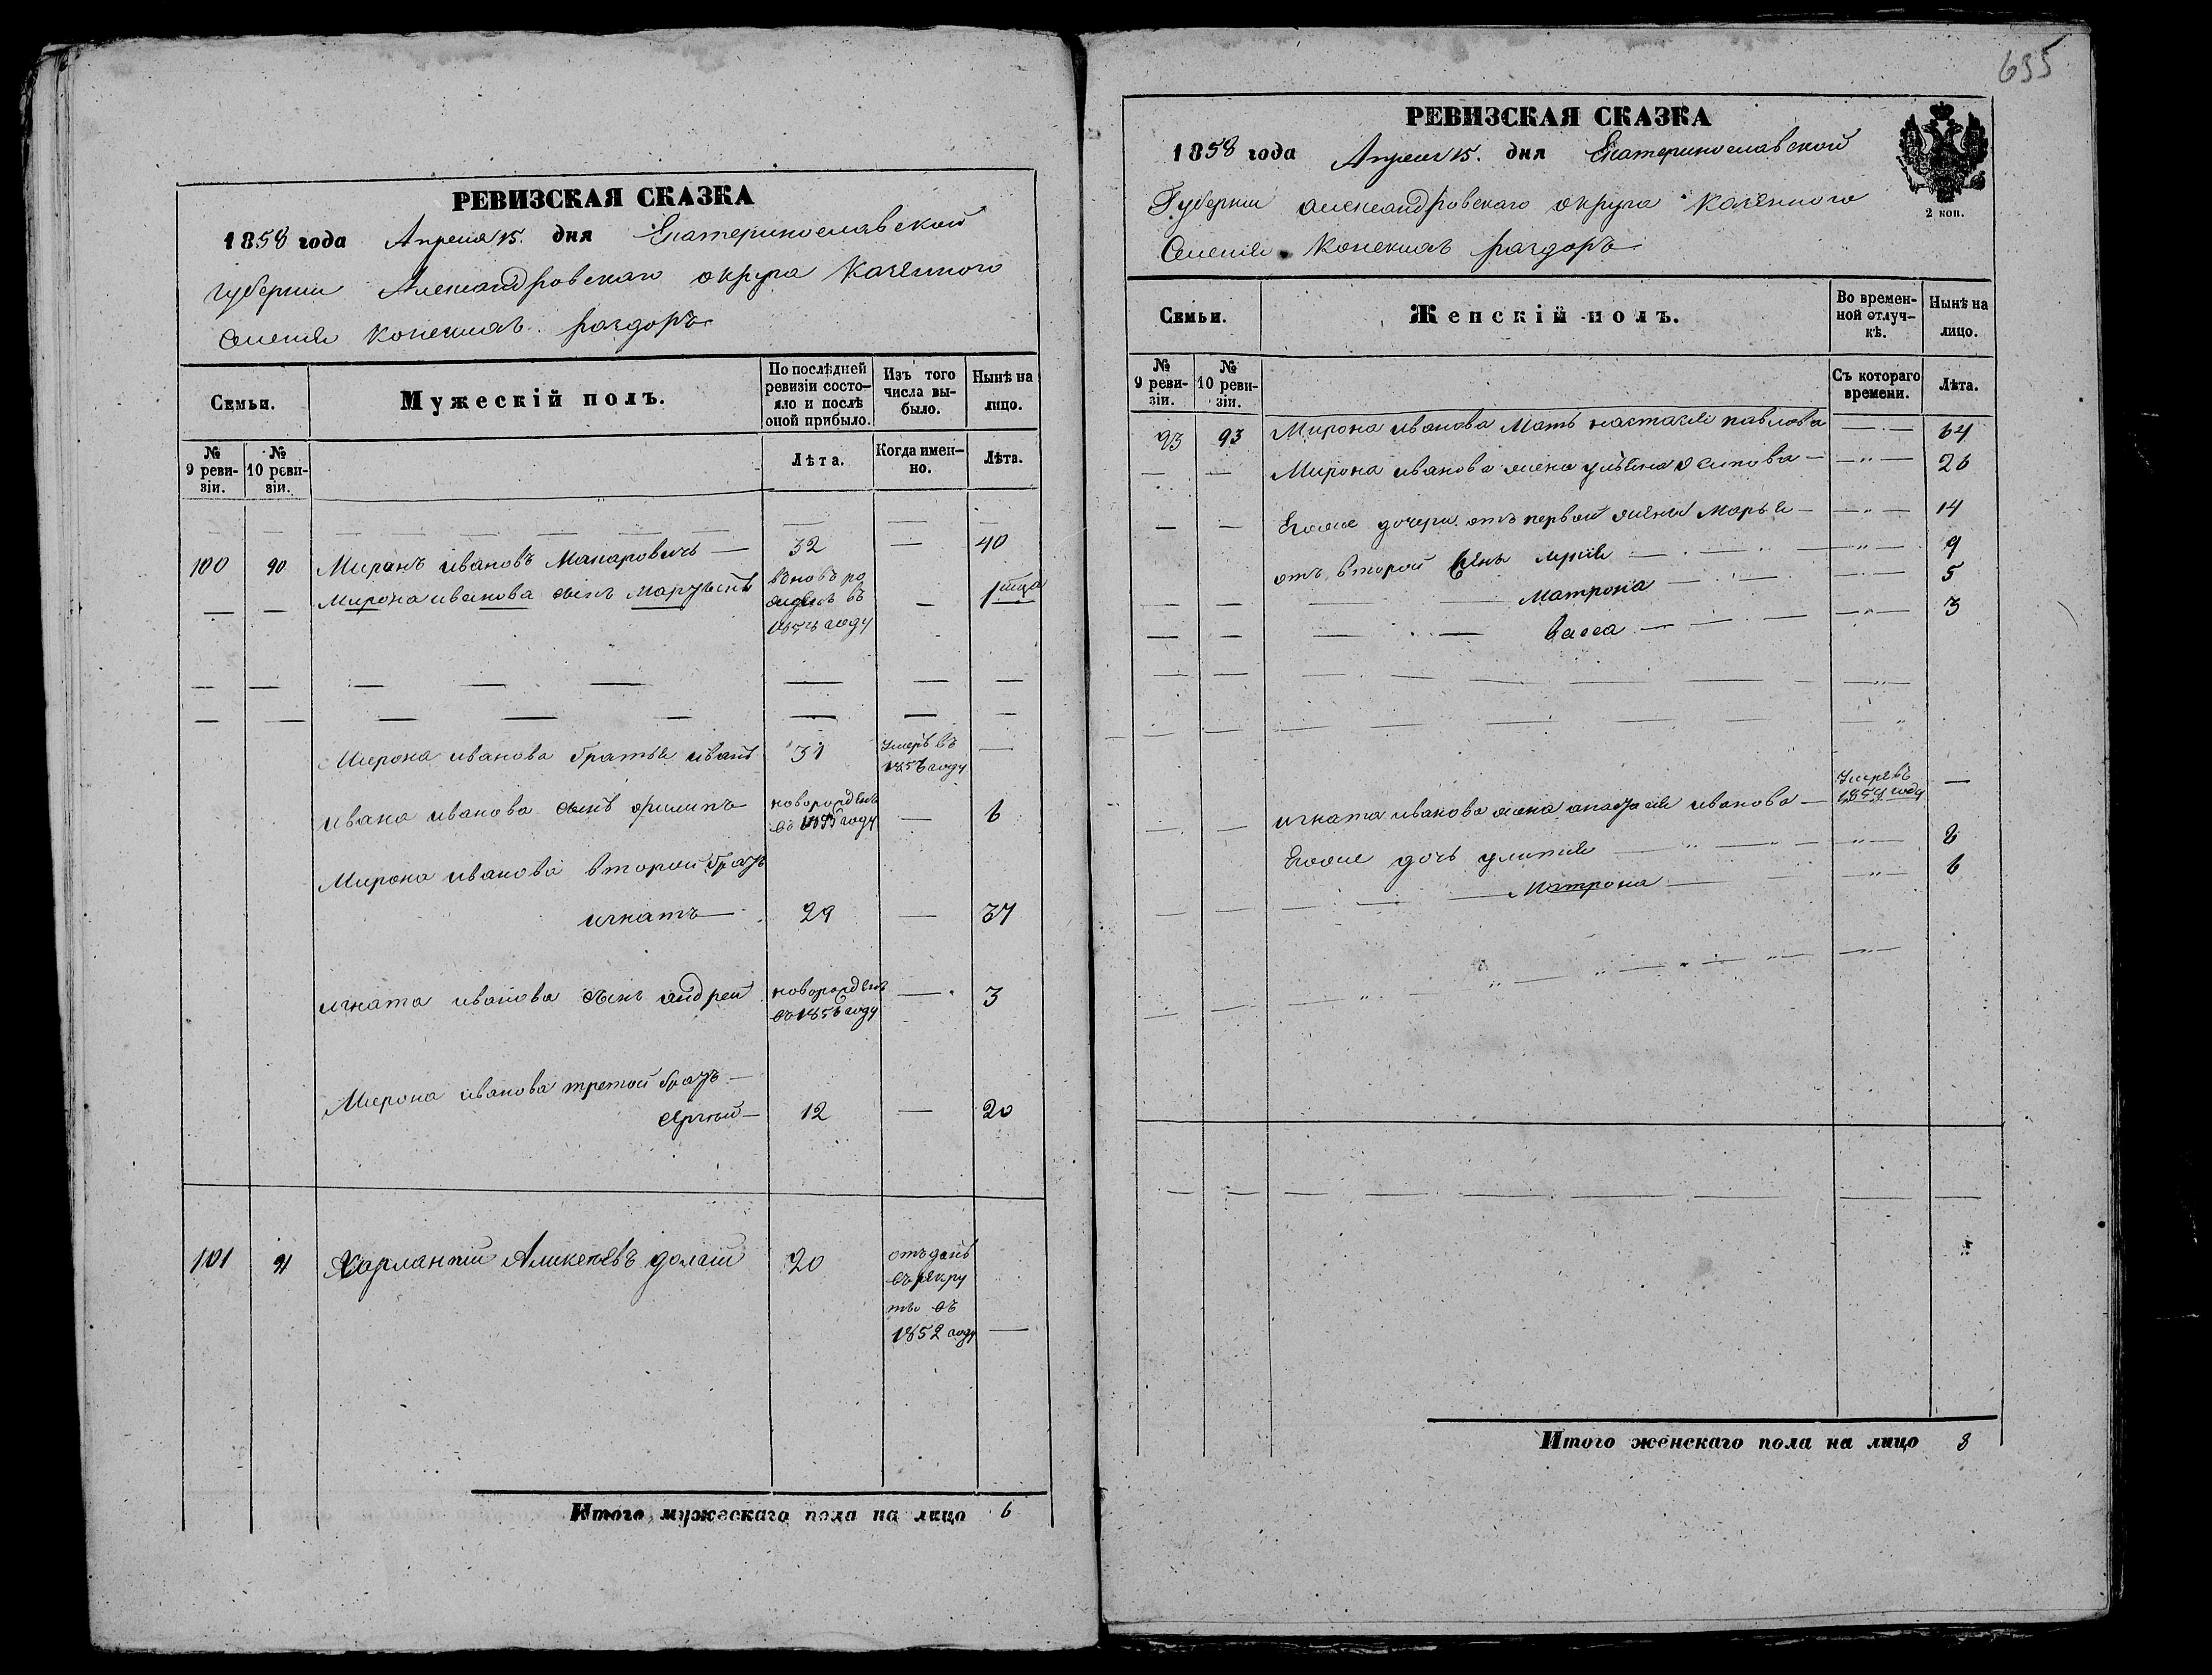 РЕВИЗСКАЯ СКАЗКА
1858 года Апреля 15. дня Екатеринославской
губернии Александровскаго округа Казенного
Селенія Конекихъ раздоръ
Семьи.
Мужескій полъ.
По послѣдней ревизіи состояло и послѣ оной прибыло.
Изъ того числа выбыло.
Нынѣ на лицо.
№ 9 ревизіи.
№ 10 ревизіи.
Лѣта.
Когда именно.
Лѣта.
100 90 Миронъ ивановъ Макаровичь — 32 — 40
Мирона иванова сынъ
вновь рожденъ въ году — 1
Мирона иванова братья иванъ 31 Умеръ въ 1856 году —
ивана иванова сынъ филипъ новорожденъ въ году — 6
Мирона иванова второй братъ
игнатъ — 29 — 37
игната иванова сынъ андрей новорожденъ въ 1856 году — 3
Мирона иванова третой братъ —
— 12 — 20
101 91 Харлампій 20 отъданъ въ рекруты въ 1852 году —
Итого мужескаго пола на лицо 6
655
РЕВИЗСКАЯ СКАЗКА
1858 года Апреля 15. дня Екатеринославской
Губернии александровскаго округа казенного
Селенія Конекихъ раздоръ
2 коп.
Семьи.
Женскій полъ.
Во временной отлучкѣ.
Нынѣ на лицо.
№ 9 ревизіи.
№ 10 ревизіи.
Съ котораго времени.
Лѣта.
93 93 Мирона иванова Мать настасія павлова — 64
Мирона иванова жена осипова — 26
Егоже дочери отъ первой жены Марья — 14
отъ второй — 9
Матрона — 5
Васса — 3
игната иванова жена иванова — 1854 году —
Егоже дочь улития — 8
Матрона — 6
Итого женскаго пола на лицо 8